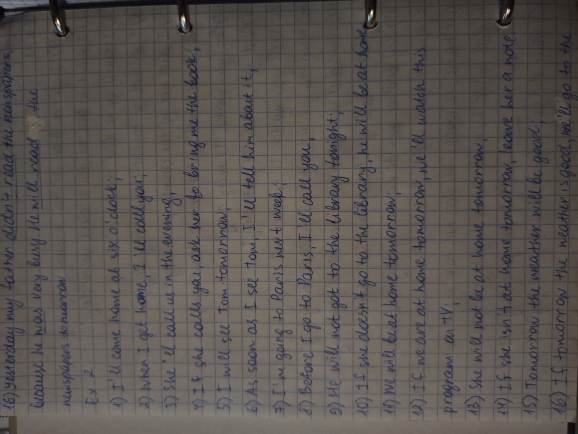 16) Yesterday my father didn't read the newspapers
because he was very busy he will read the
newspapers tomorrow
Ex 2
1) I'll come home at six o'clock;
2) When I get home, I'll call you;
3) She'll call us in the evening;
4) If she calls you ask her to bring me the book;
5) I will see Tom tomorrow;
6) As soon as I see Tom, I'll tell him about it;
7) I'm going to Paris next week;
8) Before I go to Paris, I'll call you;
9) He will not got to the library tonight;
10) If she doesn't go to the library, he will be at home
11) We will be at home tomorrow;
12) If we are at home tomorrow, we'll watch this
program on TV;
13) She will not be at home tomorrow.
14) If she isn't at home tomorrow, leave her a note
15) Tomorrow the weather will be good;
16) If tomorrow the weather is good, we'll go to the